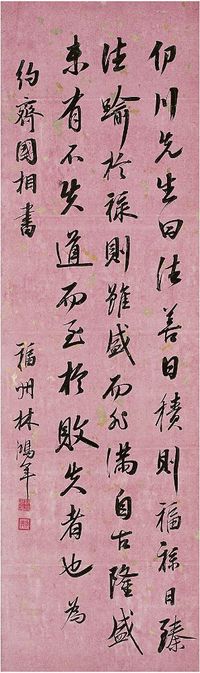 伊川先生曰德善日積則福祿日臻
德踰於祿則雖盛而非滿自古隆盛
未有不失道而至於敗失者也為
約齊國相書
福州林鴻年